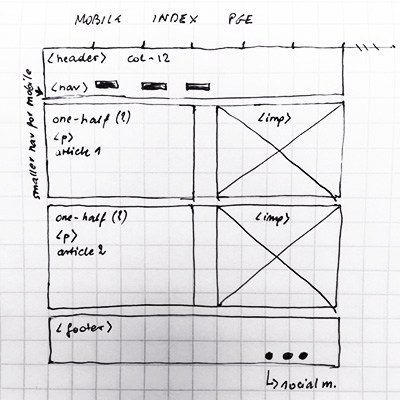 MOBILE INDEX PGE
<header> col-12
<nav>
smaller nav for mobile
one-half (?)
<p>
article 1
<imp>
one-half (?)
<p>
article 2
<imp>
<footer>
social m.